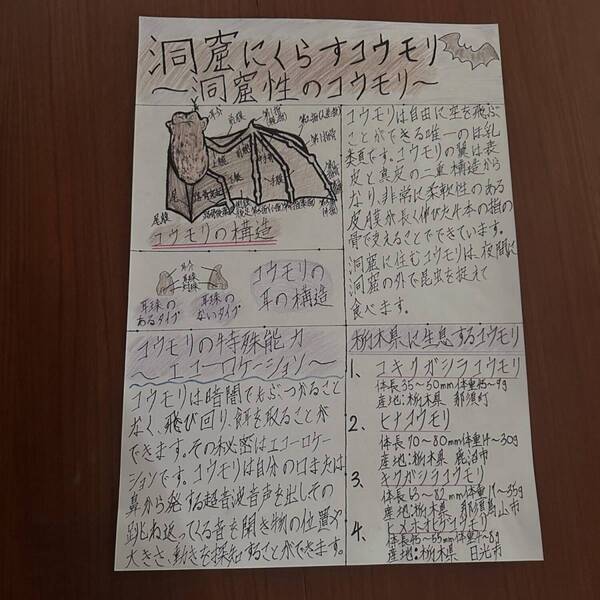 洞窟にくらすコウモリ
～洞窟性のコウモリ～
耳介
前膜
尾膜
コウモリの構造
コウモリは自由に空を飛ぶ
ことができる唯一のほ乳
類です。コウモリの翼は表
皮と真皮の二重構造から
なり、非常に柔軟性のある
皮膚が長く伸びた4本の指の
骨で支えることでできています。
洞窟に住むコウモリは、夜間に
洞窟の外で昆虫を捉えて
食べます。
耳介
耳珠
耳珠の
あるタイプ
耳珠の
ないタイプ
コウモリの
耳の構造
コウモリの特殊能力
～エコーロケーション～
コウモリは暗闇でもぶつかること
なく、飛び回り、餌を取ることが
できます。その秘密はエコーロケー
ションです。コウモリは自分の口または
鼻から発する超音波音声を出しその
跳ね返ってくる音を聞き物の位置や
大きさ、動きを探知することができます。
栃木県に生息するコウモリ
1、コキクガシラコウモリ
体長35～50mm体重45～9g
産地:栃木県 那須町
2、ヒナコウモリ
体長70～80mm体重14～30g
産地:栃木県 鹿沼市
3、キクガシラコウモリ
体長63～82mm体重17～35g
産地:栃木県 那須烏山市
4、ヒメホオヒゲコウモリ
体長45～55mm体重4～8g
産地:栃木県 日光市